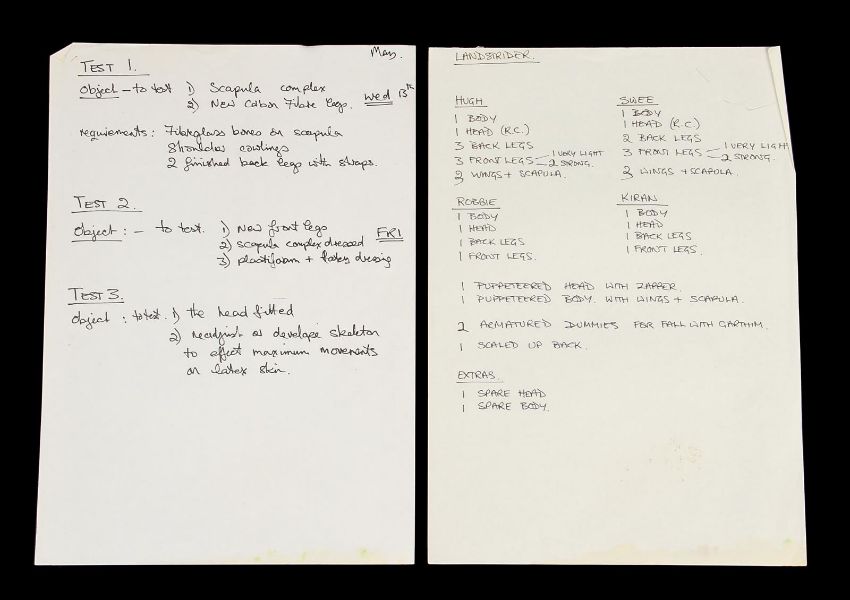 May.
TEST 1.
Object - to test 1) Scapula complex
2) New Cabon Fibre legs. Wed 13th
requiements: Fibreglass bones on scapula
Shoulder cowlings
2 finished back legs with straps.
TEST 2.
Object: - to test. 1) New front legs
2) scapula complex dressed FRI
3) plastifoam + latex dressing
TEST 3.
Object: to test. 1) the head fitted
2) readjust or develope skeleton
to effect maximum movements
on latex skin.
LANDSTRIDER.
HUGH
1 BODY
1 HEAD (R.C.)
3 BACK LEGS
3 FRONT LEGS 1 VERY LIGHT
2 STRONG.
2 WINGS + SCAPULA.
SWEE
1 BODY
1 HEAD (R.C.)
2 BACK LEGS
3 FRONT LEGS 1 VERY LIGHT
2 STRONG.
2 WINGS + SCAPULA.
ROBBIE
1 BODY
1 HEAD
1 BACK LEGS
1 FRONT LEGS.
KIRAN
1 BODY
1 HEAD
1 BACK LEGS
1 FRONT LEGS.
1 PUPPETEERED HEAD WITH ZAPPER.
1 PUPPETEERED BODY. WITH WINGS + SCAPULA.
2 ARMATURED DUMMIES FOR FALL WITH GARTHIM.
1 SCALED UP BACK.
EXTRAS.
1 SPARE HEAD
1 SPARE BODY.